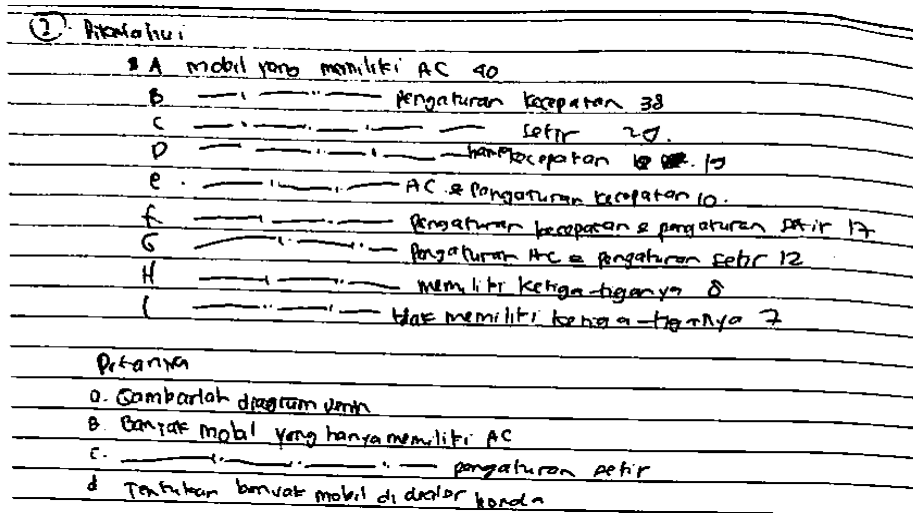 ② Diketahui
A mobil yang memiliki AC 40
B — ı — ıı — pengaturan kecepatan 38
C — ı — ıı — — setir 28.
D — — ıı — ı — hanya kecepatan 19
e . — ı — ıı — AC & Pengaturan kecepatan 10.
f — ı — ıı — Pengaturan kecepatan & pengaturan setir 17
G — ıı — ıı — Pengaturan AC & pengaturan setir 12
H — ı — ıı — memiliki ketiga-tiganya 8
I — ıı — ıı — tidak memiliki ketiga-tiganya 7
Ditanya
a. Gambarlah diagram venn
B. Banyak mobil yang hanya memiliki AC
c. — ı — ıı — ıı — pengaturan setir
d Tentukan banyak mobil di dealer honda